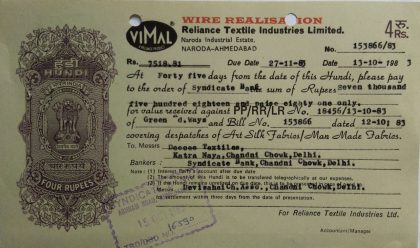 WIRE REALISATION
4 रु. Rs.
VIMAL
Reliance Textile Industries Limited.
Naroda Industrial Estate,
NARODA-AHMEDABAD
No. 153866/83
Rs. 7518.81
Due 27-11-83
Date 13-10- 1983
At Forty five days from the date of this Hundi, please pay
to the order of Syndicate Bank sum of Rupees Seven thousand
five hundred eighteen and paise eighty one only.
for value received against PP/RR/LR No. 18456/13-10-83
of Green C.Ways and Bill No. 153866 dated 12-10/ 83
covering despatches of Art Silk Fabrics/Man Made Fabrics.
To Messrs Textiles,
Katra Naya, Chandni Chowk, Delhi.
Bankers: Syndicate Bank, Chandni Chowk, Delhi.
(1) Interest after due date
(2) The amount of this Hundi is to be transferred telegraphically at our expenses.
Messrs. Devisahail Asso., Chandni Chowk, Delhi.
for settlement within three days from the date of presentation.
For Reliance Textile Industries Ltd.
Accountant/Manager
हुंडी
HUNDI
FOUR RUPEES
SYNDICATE